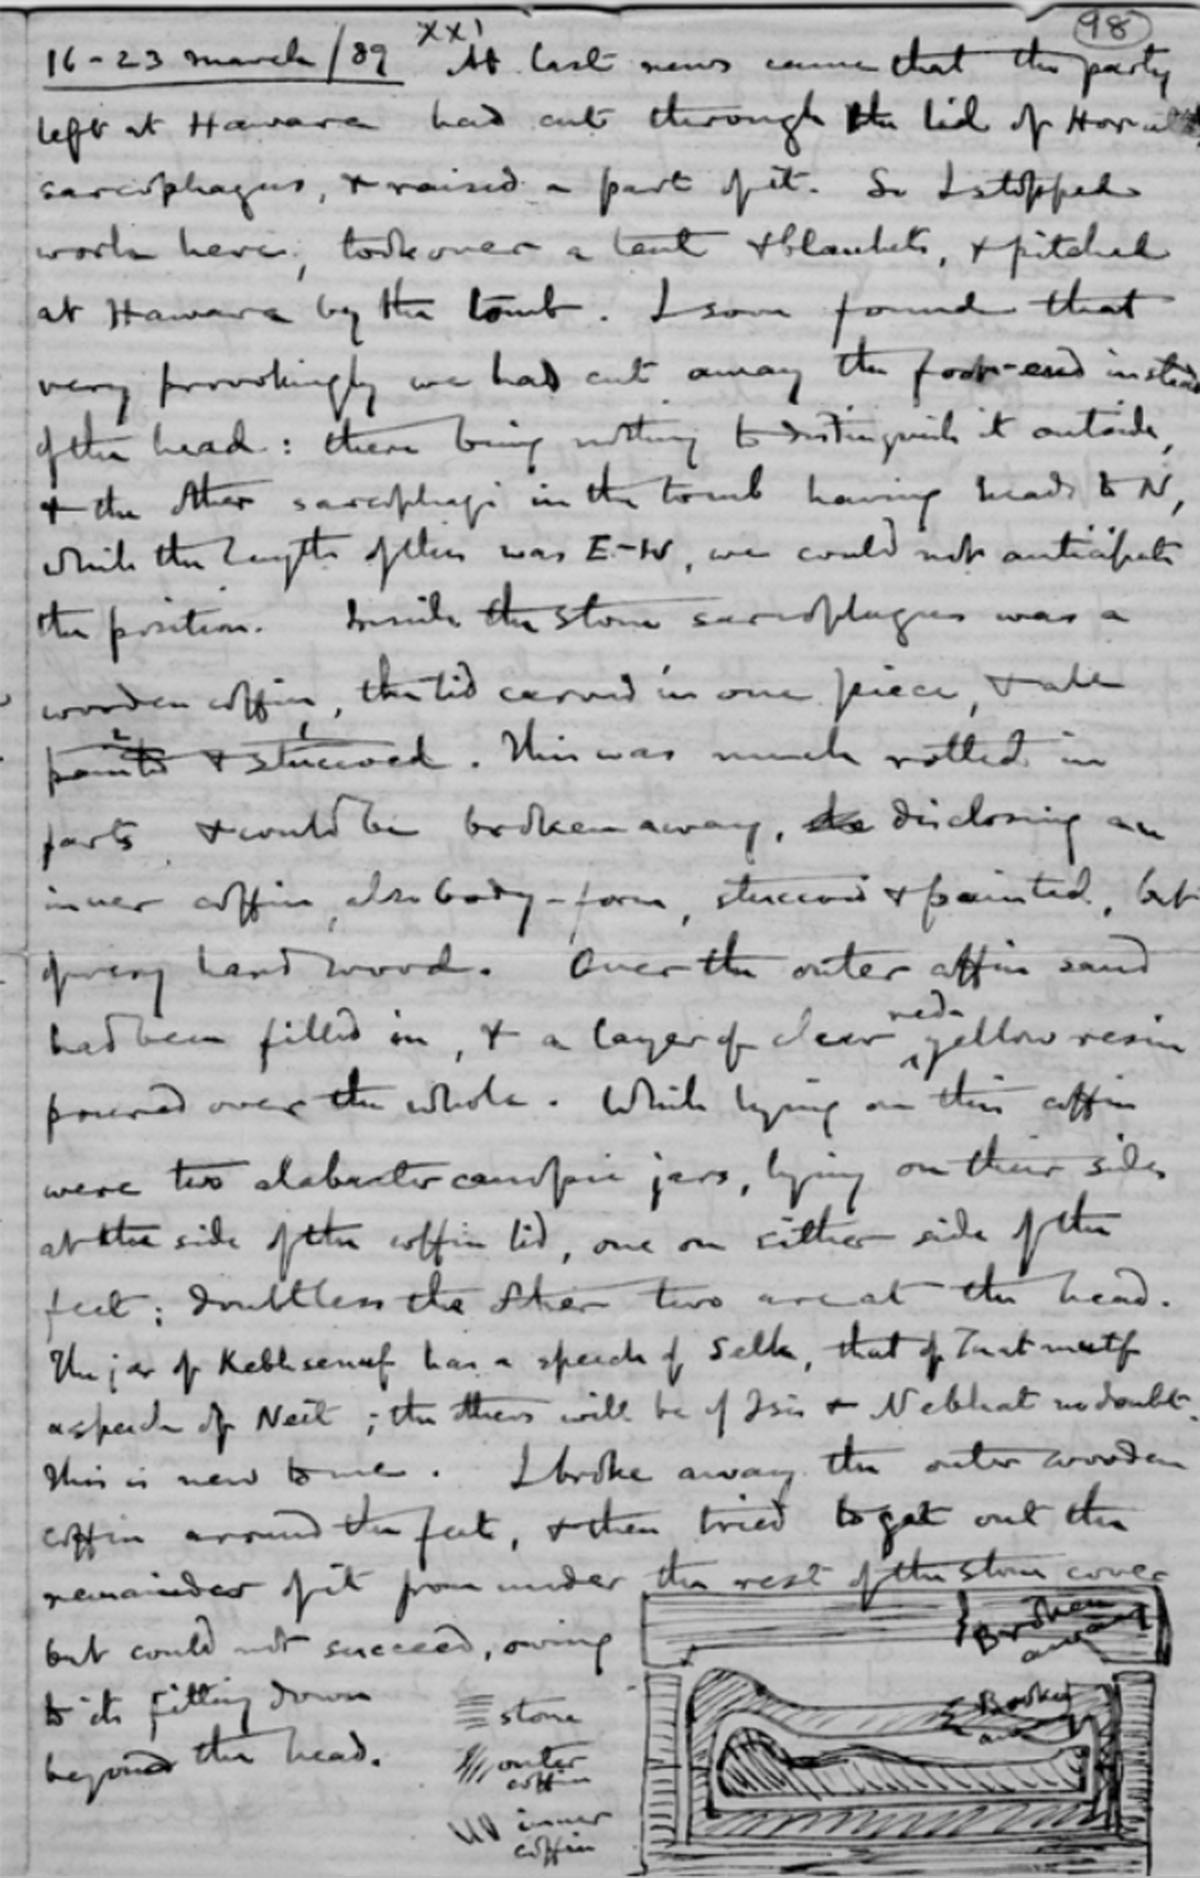 98
XXI
16-23 March/89 At last news came that the party
left at Hawara had cut through the lid of Horuta's
sarcophagus, & raised a part of it. So I stopped
work here, took over a tent & blankets, & pitched
at Hawara by the tomb. I soon found that
very provokingly we had cut away the foot-end instead
of the head: there being nothing to distinguish it outside,
& the other sarcophagi in the tomb having heads to N,
while the length of this was E-W, we could not anticipate
the position. Inside the stone sarcophagus was a
wooden coffin, the lid carved in one piece, & all
painted & stuccoed. This was much rotted in
parts & could be broken away, disclosing an
inner coffin, also body-form, stuccoed & painted, but
of very hard wood. Over the outer coffin sand
had been filled in, & a layer of clear red-yellow resin
poured over the whole. While lying on this coffin
were two alabaster canopic jars, lying on their sides
at the side of the coffin lid, one on either side of the
feet; doubtless the other two are at the head.
The jar of Kebhsenuf has a speech of Selk, that of Tuatmutf
a speech of Neit; the others will be of Isis & Nebhat no doubt.
This is new to me. I broke away the outer wooden
coffin around the feet, & then tried to get out the
remainder of it from under the rest of the stone cover
but could not succeed, owing
to its fitting down
beyond the head.
stone
outer
coffin
inner
coffin
Broken
away
Broken